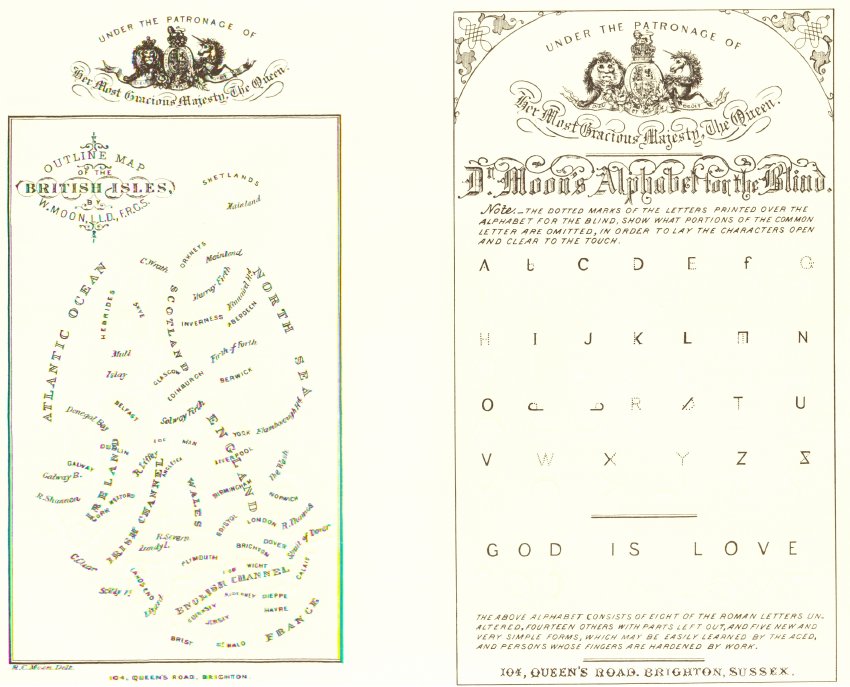 UNDER THE PATRONAGE OF
Her Most Gracious Majesty, The Queen.
OUTLINE MAP
OF THE
BRITISH ISLES,
BY
W. MOON, LL.D., F.R.G.S.
SHETLANDS
Mainland
ORKNEYS
Mainland
C. Wrath
Murray Firth
Kinnaird Hd
ATLANTIC OCEAN
HEBRIDES
SKYE
SCOTLAND
NORTH SEA
INVERNESS
ABERDEEN
Mull
Firth of Forth
Islay
GLASGOW
EDINBURGH
BERWICK
Donegal Bay
BELFAST
Solway Firth
Flamborough Hd
ENGLAND
YORK
ISLE MAN
DUBLIN
R. Liffey
ANGLESEA
LIVERPOOL
The Wash
GALWAY
Galway B.
IRELAND
R. Shannon
CORK
WEXFORD
IRISH CHANNEL
WALES
BIRMINGHAM
NORWICH
BRISTOL
LONDON
R. Thames
R. Severn
Lundy I.
BRIGHTON
DOVER
Strait of Dover
C. Clear
PLYMOUTH
WIGHT
CALAIS
Scilly Is
LANDS END
Lizard
ENGLISH CHANNEL
GUERNSEY
ALDERNEY
DIEPPE
JERSEY
HAVRE
BREST
ST MALO
FRANCE
R. C. Moon Delt.
104, QUEEN'S ROAD, BRIGHTON
UNDER THE PATRONAGE OF
DIEU ET MON DROIT
Her Most Gracious Majesty, The Queen.
Dr. Moon's Alphabet for the Blind.
Note.—THE DOTTED MARKS OF THE LETTERS PRINTED OVER THE
ALPHABET FOR THE BLIND, SHOW WHAT PORTIONS OF THE COMMON
LETTER ARE OMITTED, IN ORDER TO LAY THE CHARACTERS OPEN
AND CLEAR TO THE TOUCH.
A b C D E f G
H I J K L M N
O P Q R S T U
V W X Y Z &
GOD IS LOVE
THE ABOVE ALPHABET CONSISTS OF EIGHT OF THE ROMAN LETTERS UN-
ALTERED, FOURTEEN OTHERS WITH PARTS LEFT OUT, AND FIVE NEW AND
VERY SIMPLE FORMS, WHICH MAY BE EASILY LEARNED BY THE AGED,
AND PERSONS WHOSE FINGERS ARE HARDENED BY WORK.
104, QUEEN'S ROAD, BRIGHTON, SUSSEX.